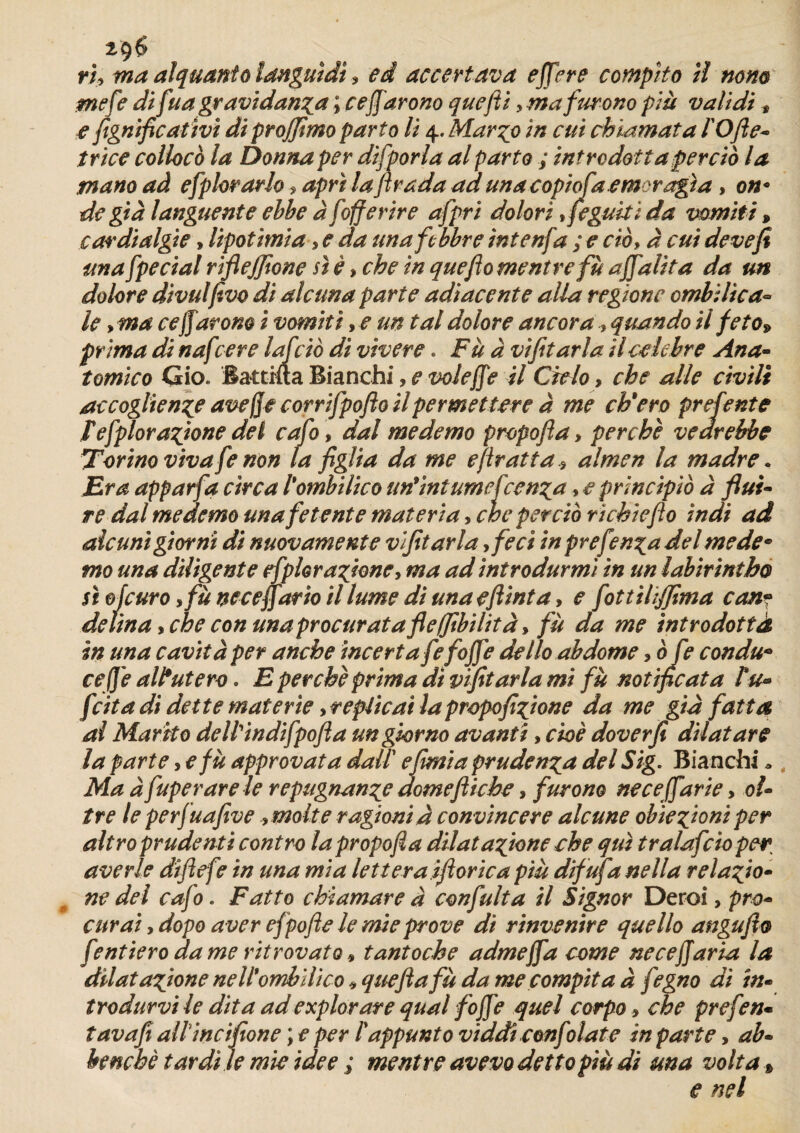 296
ri, ma alquanto languidi, ed accertava eſſere compito il nono
meſe di ſua gravidanza; ceſſarono queſti, ma furono più validi,
e ſignificativi di proſſimo parto li 4. Marzo in cui chiamata l'Oſte-
trice collocò la Donna per diſporla al parto; introdotta perciò la
mano ad eſplorarlo, aprì la ſtrada ad una copioſa emoragìa, on-
de già languente ebbe à ſofferire aſpri dolori, ſeguiti da vomiti,
cardialgie, lipotimia, e da una febbre intenſa; e ciò, à cui deveſi
una ſpecial rifleſſione sì è, che in queſto mentre fù aſſalita da un
dolore divulſivo di alcuna parte adiacente alla regione ombilica-
le, ma ceſſarono i vomiti, e un tal dolore ancora, quando il feto,
prima di naſcere laſciò di vivere. Fù à viſitarla il celebre Ana-
tomico Gio. Battiſta Bianchi, e voleſſe il Cielo, che alle civili
accoglienze aveſſe corriſpoſto il permettere à me ch'ero preſente
l'eſplorazione del caſo, dal medemo propoſta, perchè vedrebbe
Torino viva ſe non la figlia da me eſtratta, almen la madre.
Era apparſa circa l'ombilico un'intumeſcenza, e principiò à flui-
re dal medemo una fetente materia, che perciò richieſto indi ad
alcuni giorni di nuovamente viſitarla, feci in preſenza del mede-
mo una diligente eſplorazione, ma ad introdurmi in un labirintho
sì oſcuro, fù neceſſario il lume di una eſtinta, e ſottiliſſima can-
delina, che con una procurata fleſſibilità, fù da me introdotta
in una cavità per anche incerta ſe foſſe dello abdome, ò ſe condu-
ceſſe all'utero. E perchè prima di viſitarla mi fù notificata l'u-
ſcita di dette materie, replicai la propoſizione da me già fatta
al Marito dell'indiſpoſta un giorno avanti, cioè doverſi dilatare
la parte, e fù approvata dall' eſimia prudenza del Sig. Bianchi.
Ma à ſuperare le repugnanze domeſtiche, furono neceſſarie, ol-
tre le perſuaſive, molte ragioni à convincere alcune obiezioni per
altro prudenti contro la propoſta dilatazione che quì tralaſcio per
averle diſteſe in una mia lettera iſtorica più difuſa nella relazio-
ne del caſo. Fatto chiamare à conſulta il Signor Deroi, pro-
curai, dopo aver eſpoſte le mie prove di rinvenire quello anguſto
ſentiero da me ritrovato, tantoche admeſſa come neceſſaria la
dilatazione nell'ombilico, queſta fù da me compita à ſegno di in-
trodurvi le dita ad explorare qual foſſe quel corpo, che preſen-
tavaſi all'inciſione; e per l'appunto viddi conſolate in parte, ab-
benchè tardi le mie idee; mentre avevo detto più di una volta,
e nel